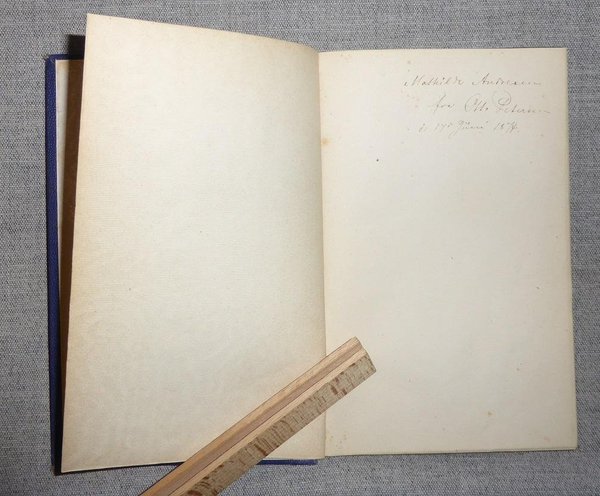 Mathilde Andresen
fra Otto Petersen
d. 17de Juni 1878.